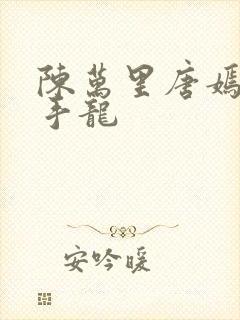 陳萬里唐嫣
手龍
安吟暖